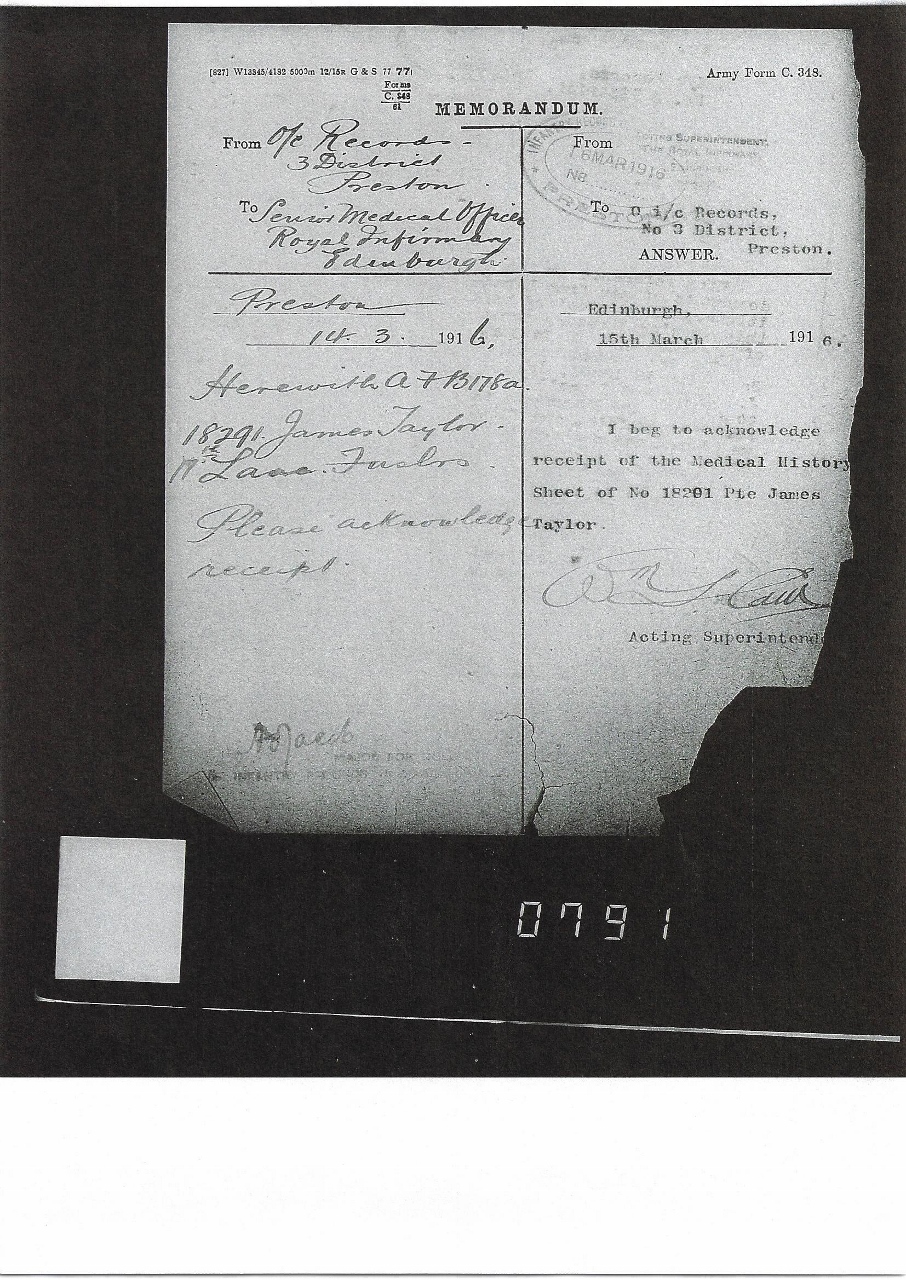 [827] W13345/4182 5000m 12/15R G & S 77 77
Forms
C. 348
61
Army Form C. 348.
MEMORANDUM.
From O/c Records -
3 District
Preston
To Senior Medical Officer
Royal Infirmary
Edenburgh.
Preston
14. 3. 1916,
Herewith A F B178a.
18291. James Taylor -
Lanc. Fuslrs.
Please acknowledge
receipt.
MAJOR FOR
INFANTRY RECORDS
From
SUPERINTENDENT,
THE ROYAL INFIRMARY
INFANTRY RECORD
16 MAR 1916
No
PRESTON
To O i/c Records,
No 3 District,
Preston.
ANSWER.
Edinburgh,
15th March 1916.
I beg to acknowledge
receipt of the Medical History
Sheet of No 18291 Pte James
Taylor.
Acting Superintend
0791